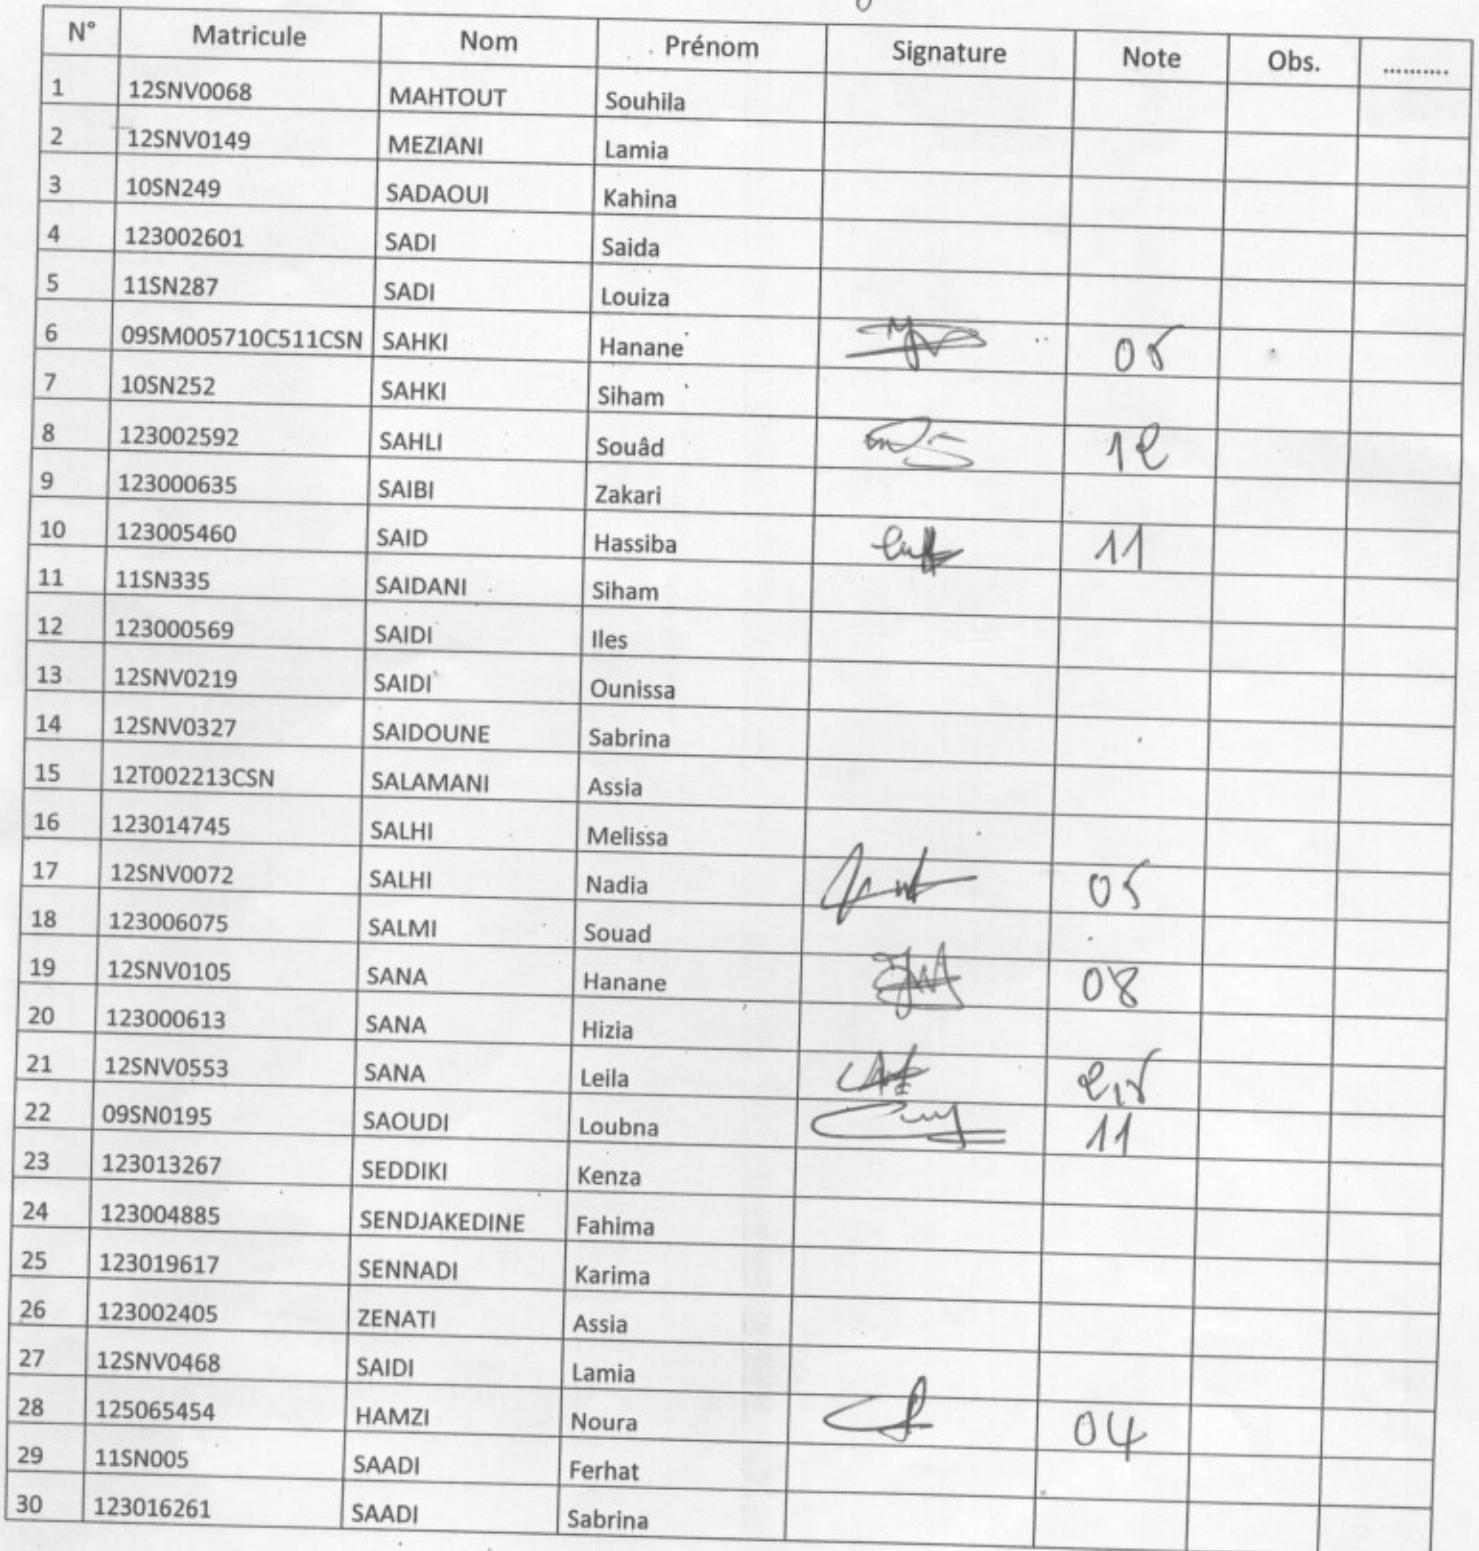 N° Matricule Nom Prénom Signature Note Obs. ..........
1 12SNV0068 MAHTOUT Souhila
2 12SNV0149 MEZIANI Lamia
3 10SN249 SADAOUI Kahina
4 123002601 SADI Saida
5 11SN287 SADI Louiza
6 09SM005710C511CSN SAHKI Hanane 05
7 10SN252 SAHKI Siham
8 123002592 SAHLI Souâd 12
9 123000635 SAIBI Zakari
10 123005460 SAID Hassiba 11
11 11SN335 SAIDANI Siham
12 123000569 SAIDI Iles
13 12SNV0219 SAIDI Ounissa
14 12SNV0327 SAIDOUNE Sabrina
15 12T002213CSN SALAMANI Assia
16 123014745 SALHI Melissa
17 12SNV0072 SALHI Nadia 05
18 123006075 SALMI Souad
19 12SNV0105 SANA Hanane 08
20 123000613 SANA Hizia
21 12SNV0553 SANA Leila 2,5
22 09SN0195 SAOUDI Loubna 11
23 123013267 SEDDIKI Kenza
24 123004885 SENDJAKEDINE Fahima
25 123019617 SENNADI Karima
26 123002405 ZENATI Assia
27 12SNV0468 SAIDI Lamia
28 125065454 HAMZI Noura 04
29 11SN005 SAADI Ferhat
30 123016261 SAADI Sabrina